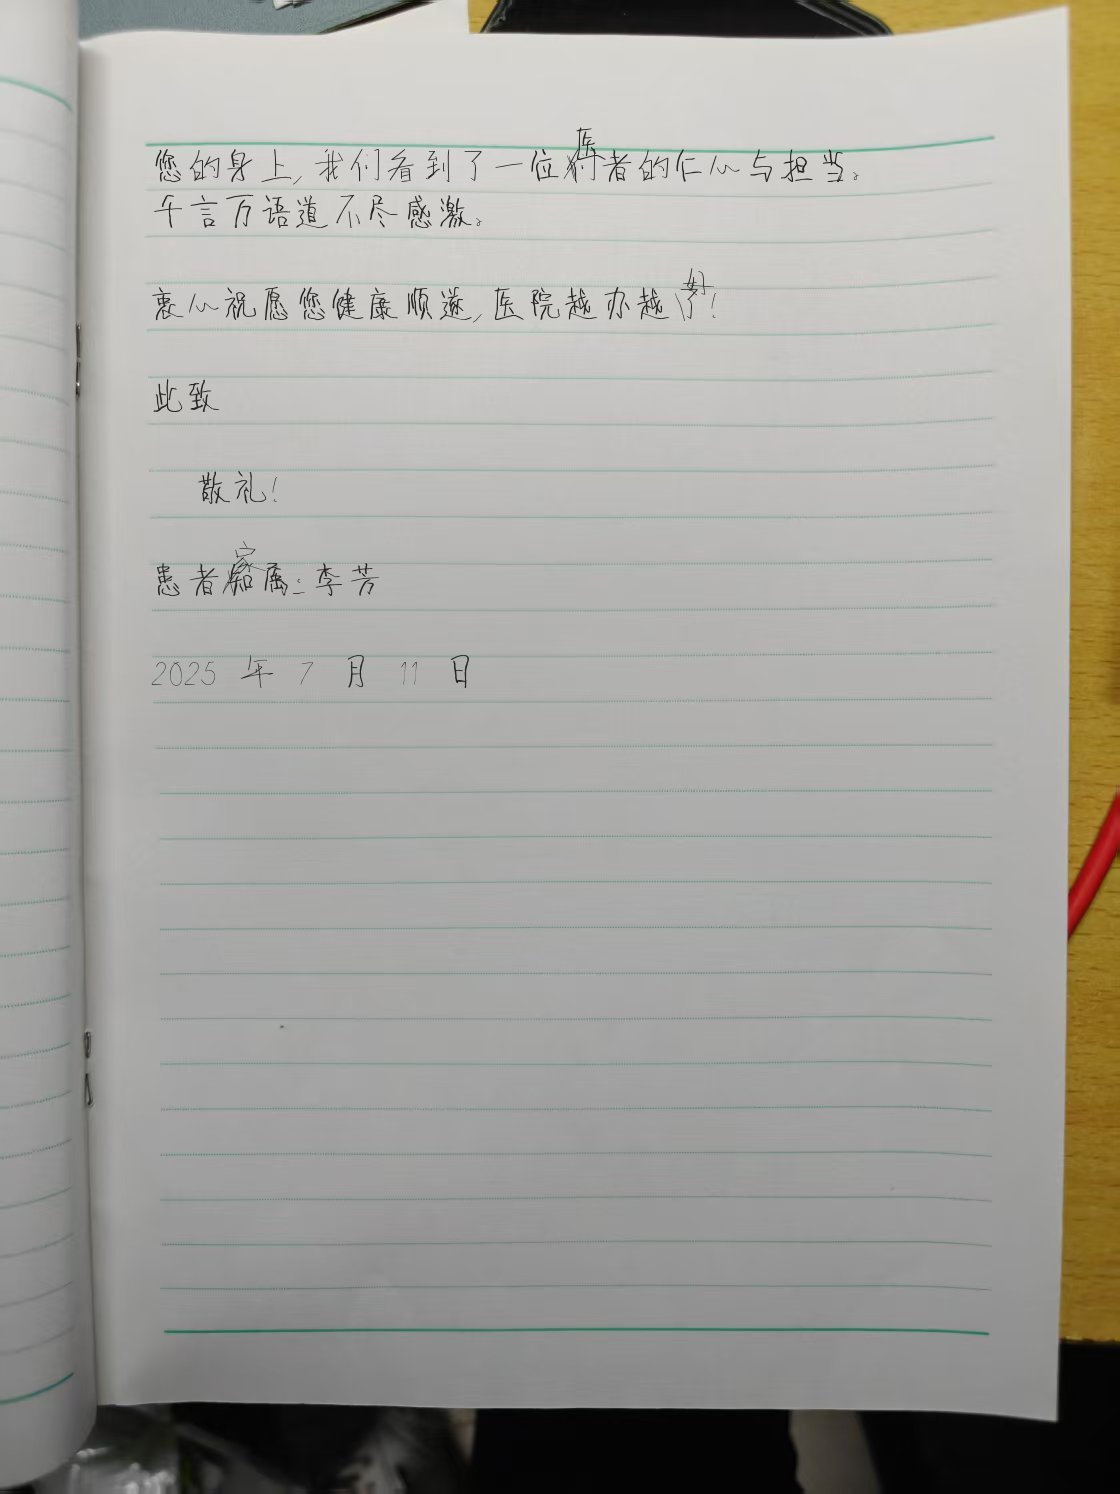 您的身上,我们看到了一位医者的仁心与担当。
千言万语道不尽感激。
衷心祝愿您健康顺遂,医院越办越好!
此致
敬礼!
患者家属:李芳
2025 年 7 月 11 日